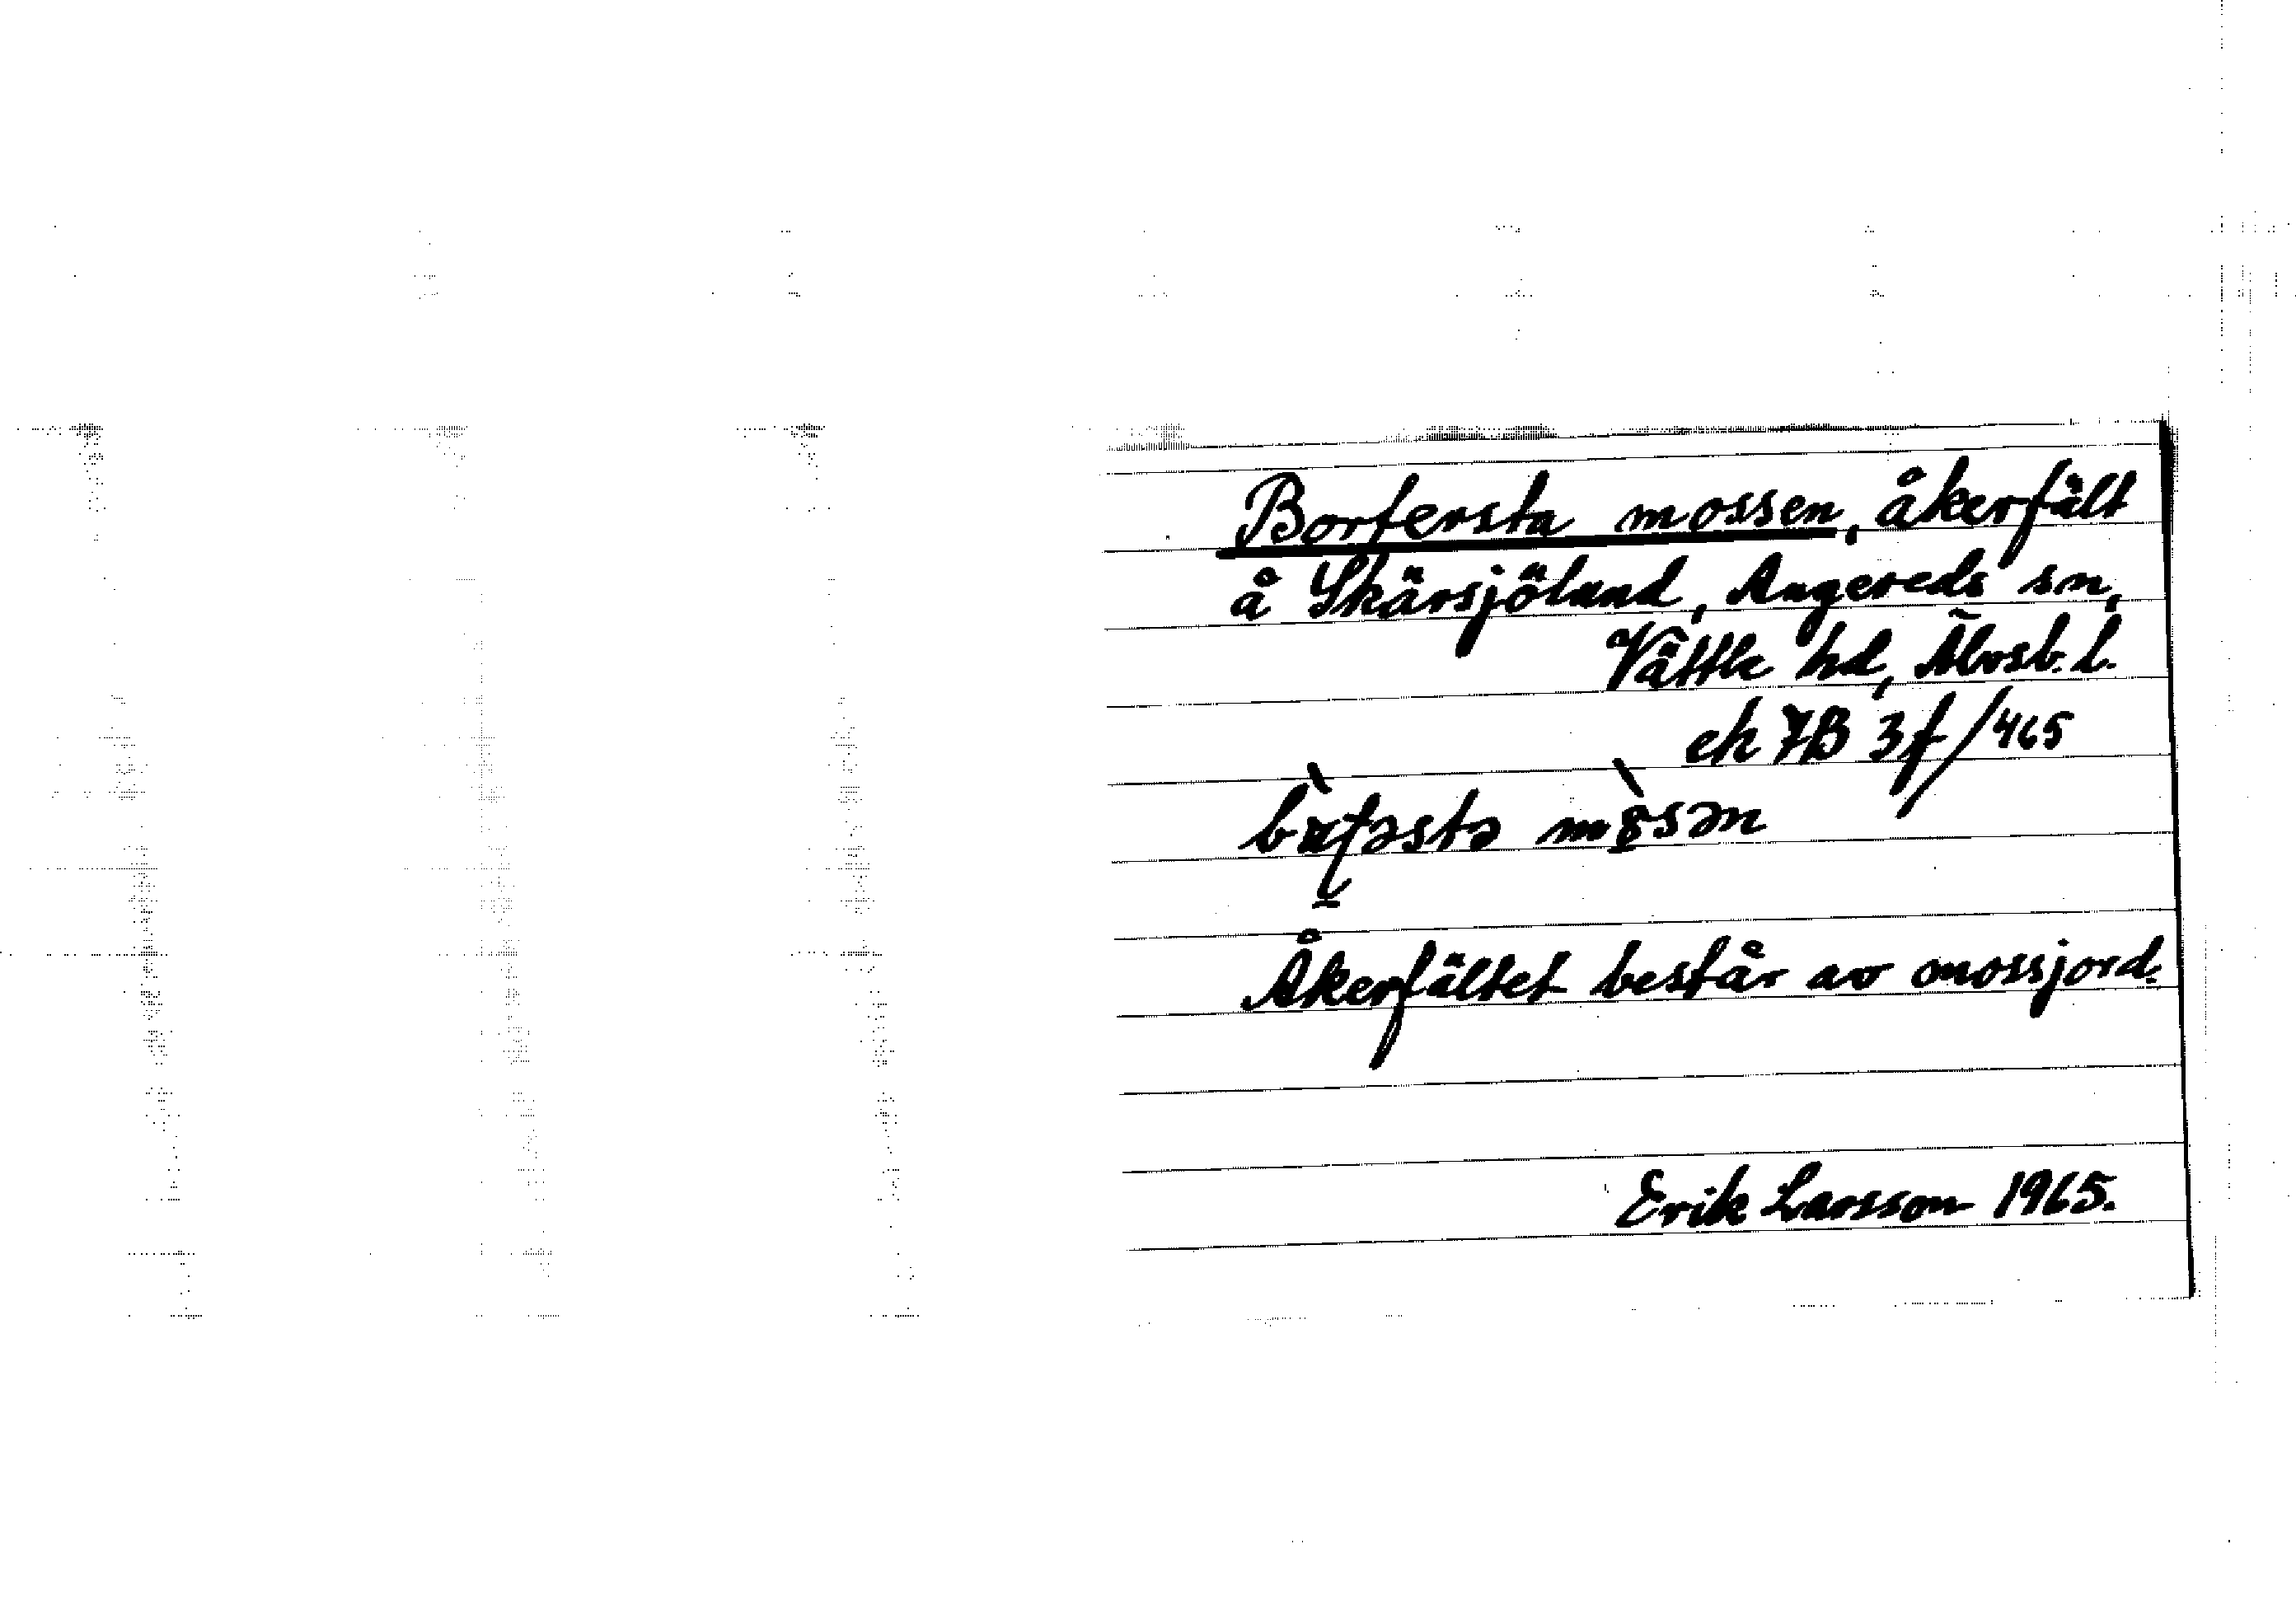 Bortersta mossen, åkerfält
å Skärsjölund, Angereds sn,
Vättle hd, Älvsb. l.
ek 7B 3f/465
Åkerfältet består av mossjord.
Erik Larsson 1965.